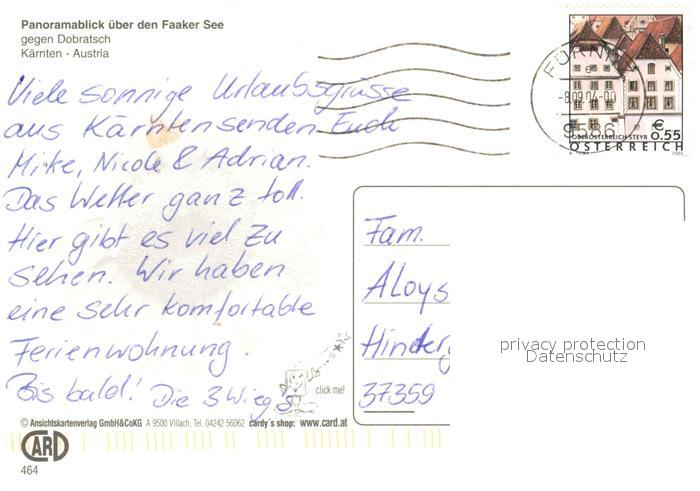 Panoramablick über den Faaker See
gegen Dobratsch
Kärnten - Austria
Viele sonnige Urlaubsgrüsse
aus Kärnten senden Euch
Mike, Nicole & Adrian.
Das Wetter ganz toll.
Hier gibt es viel zu
sehen. Wir haben
eine sehr komfortable
Ferienwohnung.
Bis bald! Die 3 Wiegs
click me!
© Ansichtskartenverlag GmbH&CoKG A 9500 Villach, Tel. 04242 56062 cardy´s shop: www.card.at
CARD
464
FÜRN
-8.09.04-00
9586
€
0.55
OBERÖSTERREICH STEYR
ÖSTERREICH
Fam.
Aloys
Hinter
37359
privacy protection
Datenschutz